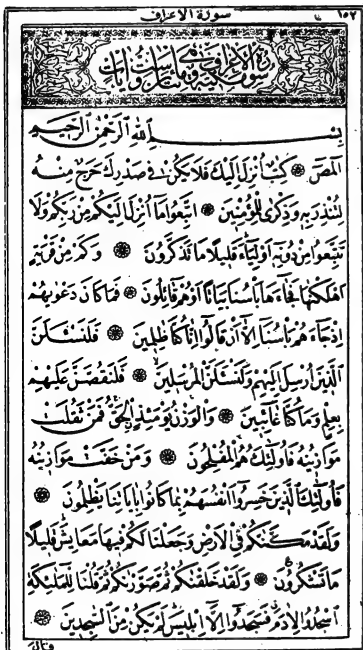 ١٥٢ سورة الاعراف
سورة الاعراف مكية وهي مائتان وست آيات
بسم الله الرحمن الرحيم
المص كتاب أنزل اليك فلا يكن في صدرك حرج منه
لتنذر به وذكرى للمؤمنين اتبعوا ما أنزل اليكم من ربكم ولا
تتبعوا من دونه أولياء قليلا ما تذكرون وكم من قرية
اهلكناها فجاءها بأسنا بياتا أوهم قائلون فما كان دعويهم
إذ جاءهم بأسنا إلا أن قالوا إنا كنا ظلمين فلنسئلن
الذين أرسل اليهم ولنسئلن المرسلين فلنقصن عليهم
بعلم وما كنا غائبين والوزن يومئذ الحق فمن ثقلت
موازينه فأولئك هم المفلحون ومن خفت موازينه
فأولئك الذين خسروا انفسهم بما كانوا بآياتنا يظلمون
ولقد مكنكم في الارض وجعلنا لكم فيها معايش قليلا
ما تشكرون ولقد خلقنكم ثم صورنكم ثم قلنا للملئكة
اسجدوا لادم فسجدوا إلا إبليس لم يكن من السجدين
قال ما